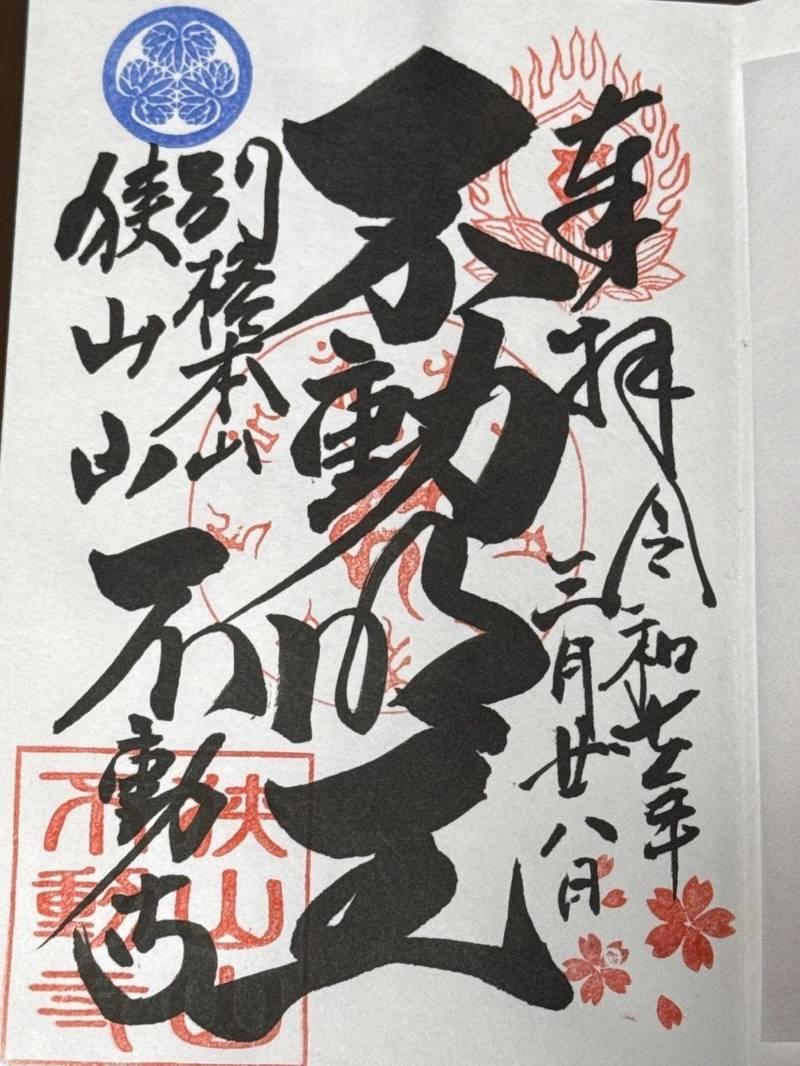 奉拝
令和七年
三月廿八日
不動明王
別格本山
狭山山
不動寺
狭山山
不動寺